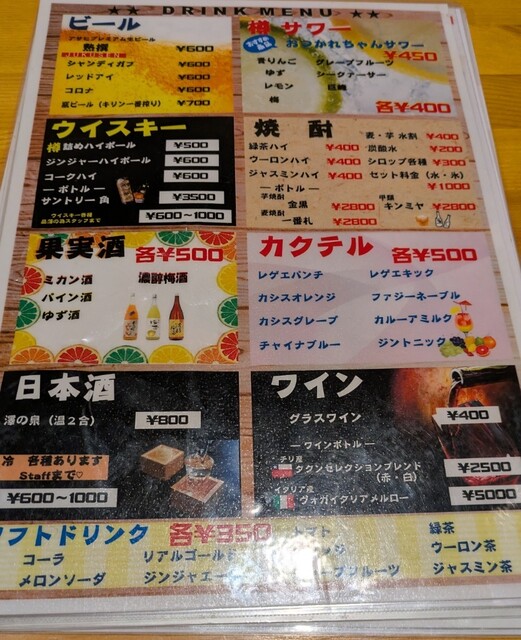 ★★ DRINK MENU ★★
ビール
アサヒプレミアム生ビール
熱撰 ¥600
シャンディガフ ¥600
レッドアイ ¥600
コロナ ¥600
瓶ビール(キリン一番搾り) ¥700
樽 サワー
おつかれちゃんサワー
¥450
青りんご グレープフルーツ
ゆず シークァーサー
レモン 巨峰
梅
各¥400
ウイスキー
樽詰めハイボール ¥500
ジンジャーハイボール ¥600
コークハイ ¥600
―ボトル―
サントリー 角 ¥3500
ウイスキー各種
¥600〜1000
焼酎
緑茶ハイ ¥400
ウーロンハイ ¥400
ジャスミンハイ ¥400
麦・芋 水割 ¥400
炭酸水 ¥200
シロップ各種 ¥300
セット料金(水・氷)
¥1000
―ボトル―
芋焼酎
金黒 ¥2800
麦焼酎
一番札 ¥2800
甲類
キンミヤ ¥2800
果実酒 各¥500
ミカン酒 濃醇梅酒
パイン酒
ゆず酒
カクテル 各¥500
レゲエパンチ レゲエキック
カシスオレンジ ファジーネーブル
カシスグレープ カルーアミルク
チャイナブルー ジントニック
日本酒
澤の泉(温2合) ¥800
冷 各種あります
Staffまで♡
¥600〜1000
ワイン
グラスワイン ¥400
―ワインボトル―
チリ産
タクンセレクションブレンド
(赤・白) ¥2500
イタリア産
ヴォガイタリアメルロー ¥5000
ソフトドリンク 各¥350
コーラ リアルゴールド
メロンソーダ ジンジャエー
トマト 緑茶
ンジ ウーロン茶
ープフルーツ ジャスミン茶